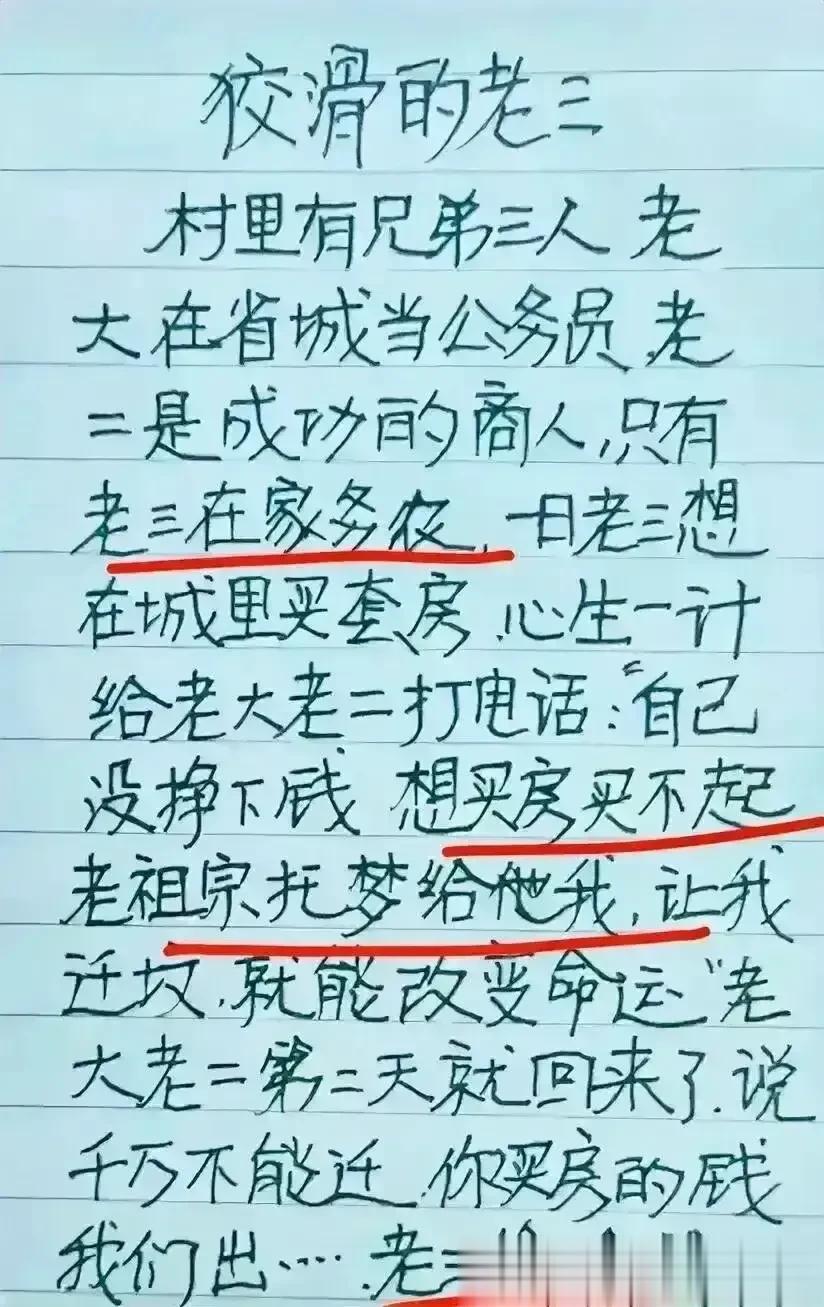 狡滑的老三
村里有兄弟三人 老
大在省城当公务员,老
二是成功的商人,只有
老三在家务农,一日老三想
在城里买套房,心生一计
给老大老二打电话:“自己
没挣下钱 想买房买不起
老祖宗托梦给他我,让我
迁坟,就能改变命运”老
大老二第二天就回来了.说
千万不能迁,你买房的钱
我们出····.老三